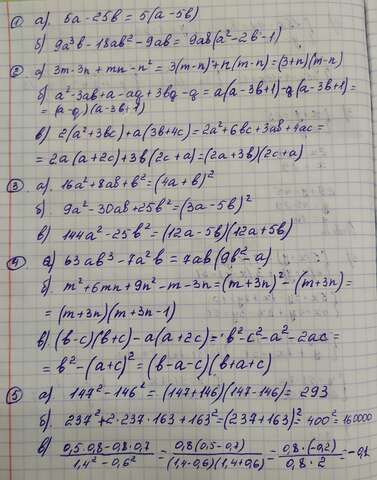 ① а). 5a - 25b = 5(a - 5b)
б) 9a³b - 18ab² - 9ab = 9ab(a² - 2b - 1)
② а) 3m - 3n + mn - n² = 3(m-n) + n(m-n) = (3+n)(m-n)
б) a² - 3ab + a - aq + 3bq - q = a(a - 3b + 1) - q(a - 3b + 1) =
= (a - q)(a - 3b + 1)
в) 2(a² + 3bc) + a(3b + 4c) = 2a² + 6bc + 3ab + 4ac =
= 2a(a + 2c) + 3b(2c + a) = (2a + 3b)(2c + a)
③ а). 16a² + 8ab + b² = (4a + b)²
б). 9a² - 30ab + 25b² = (3a - 5b)²
в) 144a² - 25b² = (12a - 5b)(12a + 5b)
④ а) 63ab³ - 7a²b = 7ab(9b² - a)
б). m² + 6mn + 9n² - m - 3n = (m + 3n)² - (m + 3n) =
= (m + 3n)(m + 3n - 1)
в) (b - c)(b + c) - a(a + 2c) = b² - c² - a² - 2ac =
= b² - (a + c)² = (b - a - c)(b + a + c)
⑤ а) 147² - 146² = (147 + 146)(147 - 146) = 293
б). 237² + 2·237·163 + 163² = (237 + 163)² = 400² = 160000
в) (0,5·0,8 - 0,8·0,7)/(1,4² - 0,6²) = 0,8(0,5 - 0,7)/((1,4 - 0,6)(1,4 + 0,6)) = 0,8·(-0,2)/(0,8·2) = -0,1